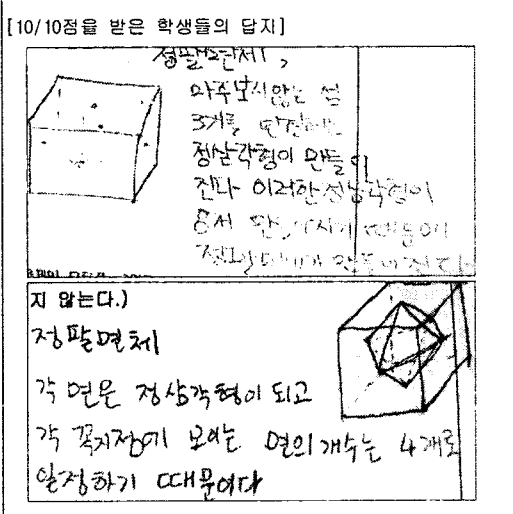 [10/10점을 받은 학생들의 답지]
정팔면체,
마주보지않는 점
3개를 연결하면
정삼각형이 만들어
진다 이러한 정삼각형이
8개 만들어지기 때문에
지 않는다.)
정팔면체
각 면은 정삼각형이 되고
각 꼭지점에 모이는 면의 개수는 4개로
일정하기 때문이다